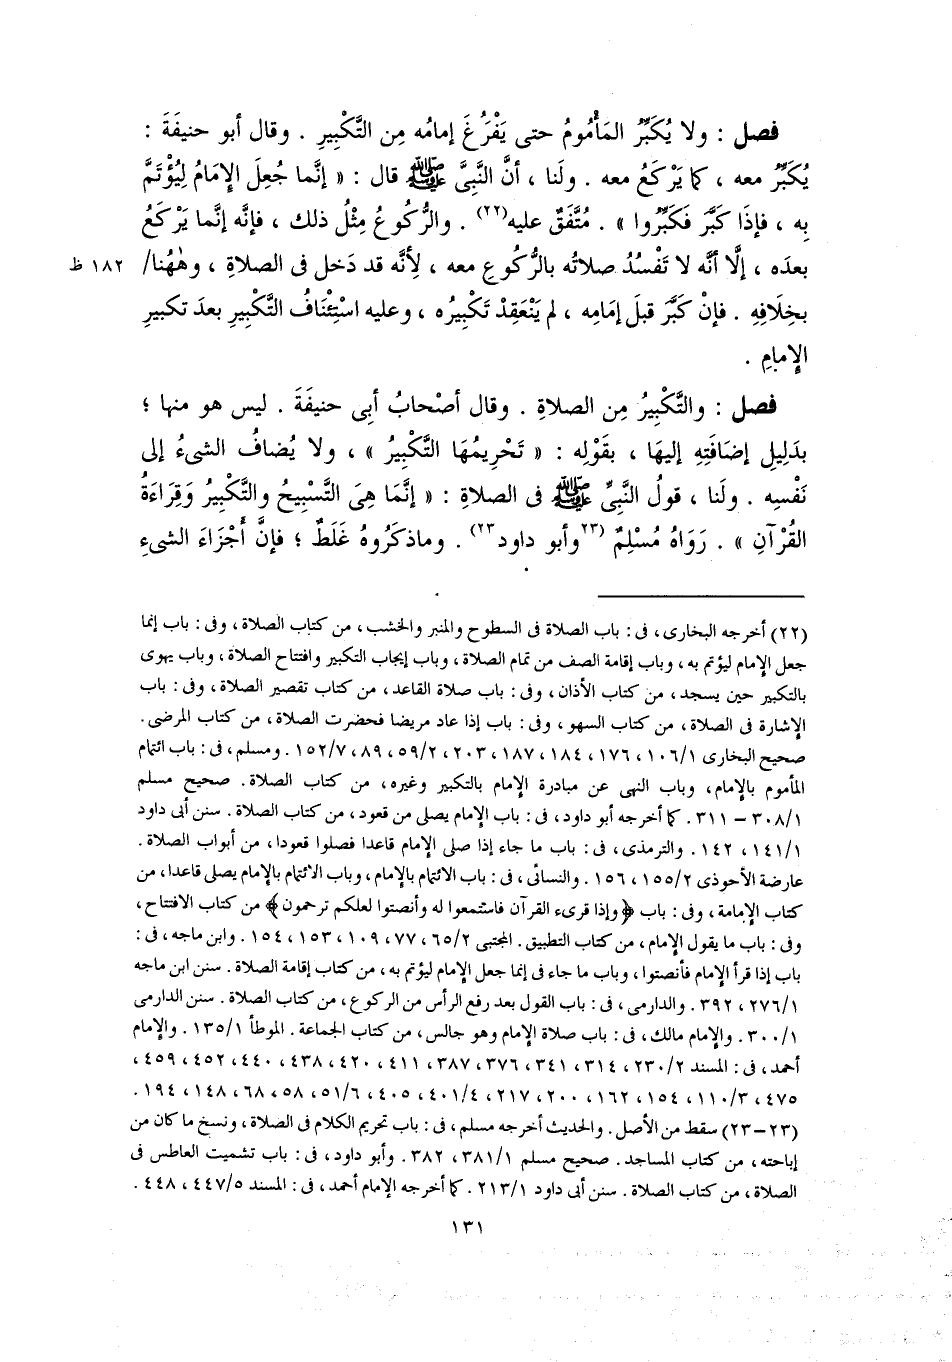 فصل : ولا يُكَبِّرُ المَأْمُومُ حتى يَفْرُغَ إمامُه مِن التَّكْبِيرِ . وقال أبو حنيفَةَ :
يُكَبِّرُ معه ، كما يَرْكَعُ معه . ولَنا ، أنَّ النَّبِىَّ ﷺ قال : « إنَّما جُعِلَ الإمَامُ لِيُؤْتَمَّ
بِه ، فإذَا كَبَّرَ فَكَبِّرُوا » . مُتَّفَقٌ عليه(٢٢) . والرُّكُوعُ مِثْلُ ذلك ، فإنَّه إنَّما يَرْكَعُ
بعدَه ، إلَّا أنَّه لا تَفْسُدُ صلاتُه بالرُّكوعِ معه ، لِأنَّه قد دَخل فى الصلاةِ ، وهٰهُنا/ ١٨٢ ظ
بخِلَافِهِ . فإنْ كَبَّرَ قبلَ إمَامِه ، لم يَنْعَقِدْ تَكْبِيرُه ، وعليه اسْتِئْنافُ التَّكْبِيرِ بعدَ تكبيرِ
الإمامِ .
فصل : والتَّكْبِيرُ مِن الصلاةِ . وقال أصْحابُ أبى حنيفَةَ . ليس هو منها ؛
بدَلِيلِ إضَافَتِهِ إليهَا ، بقَوْلِه : « تَحْرِيمُهَا التَّكْبِيرُ » ، ولا يُضافُ الشىءُ إلى
نَفْسِه . ولَنا ، قولُ النَّبِىِّ ﷺ فى الصلاةِ : « إنَّمَا هِىَ التَّسْبِيحُ والتَّكْبِيرُ وَقِرَاءَةُ
القُرْآنِ » . رَوَاهُ مُسْلِمٌ (٢٣وأبو داود٢٣) . وماذكَرُوهُ غَلَطٌ ؛ فإنَّ أَجْزَاءَ الشىءِ
(٢٢) أخرجه البخارى، فى : باب الصلاة فى السطوح والمنبر والخشب، من كتاب الصلاة، وفى : باب إنما
جعل الإمام ليؤتم به، وباب إقامة الصف من تمام الصلاة، وباب إيجاب التكبير وافتتاح الصلاة، وباب يهوى
بالتكبير حين يسجد، من كتاب الأذان، وفى : باب صلاة القاعد، من كتاب تقصير الصلاة، وفى : باب
الإشارة فى الصلاة، من كتاب السهو، وفى : باب إذا عاد مريضا فحضرت الصلاة، من كتاب المرضى.
صحيح البخارى ١٠٦/١، ١٧٦، ١٨٤، ١٨٧، ٢٠٣، ٥٩/٢، ٨٩، ١٥٢/٧. ومسلم، فى : باب ائتمام
المأموم بالإمام، وباب النهى عن مبادرة الإمام بالتكبير وغيره، من كتاب الصلاة. صحيح مسلم
٣٠٨/١ – ٣١١. كما أخرجه أبو داود، فى : باب الإمام يصلى من قعود، من كتاب الصلاة. سنن أبى داود
١٤١/١، ١٤٢. والترمذى، فى : باب ما جاء إذا صلى الإمام قاعدا فصلوا قعودا، من أبواب الصلاة.
عارضة الأحوذى ١٥٥/٢، ١٥٦. والنسائى، فى : باب الائتمام بالإمام، وباب الائتمام بالإمام يصلى قاعدا، من
كتاب الإمامة، وفى : باب ﴿وإذا قرىء القرآن فاستمعوا له وأنصتوا لعلكم ترحمون﴾ من كتاب الافتتاح،
وفى : باب ما يقول الإمام، من كتاب التطبيق. المجتبى ٦٥/٢، ٧٧، ١٠٩، ١٥٣، ١٥٤. وابن ماجه، فى :
باب إذا قرأ الإمام فأنصتوا، وباب ما جاء فى إنما جعل الإمام ليؤتم به، من كتاب إقامة الصلاة. سنن ابن ماجه
٢٧٦/١، ٣٩٢. والدارمى، فى : باب القول بعد رفع الرأس من الركوع، من كتاب الصلاة. سنن الدارمى
٣٠٠/١. والإمام مالك، فى : باب صلاة الإمام وهو جالس، من كتاب الجماعة. الموطأ ١٣٥/١. والإمام
أحمد، فى : المسند ٢٣٠/٢، ٣١٤، ٣٤١، ٣٧٦، ٣٨٧، ٤١١، ٤٢٠، ٤٣٨، ٤٤٠، ٤٥٢، ٤٥٩،
٤٧٥، ١١٠/٣، ١٥٤، ١٦٢، ٢٠٠، ٢١٧، ٤٠١/٤، ٤٠٥، ٥١/٦، ٥٨، ٦٨، ١٤٨، ١٩٤.
(٢٣–٢٣) سقط من الأصل. والحديث أخرجه مسلم، فى : باب تحريم الكلام فى الصلاة، ونسخ ما كان من
إباحته، من كتاب المساجد. صحيح مسلم ٣٨١/١، ٣٨٢. وأبو داود، فى : باب تشميت العاطس فى
الصلاة، من كتاب الصلاة. سنن أبى داود ٢١٣/١. كما أخرجه الإمام أحمد، فى : المسند ٤٤٧/٥، ٤٤٨.
١٣١